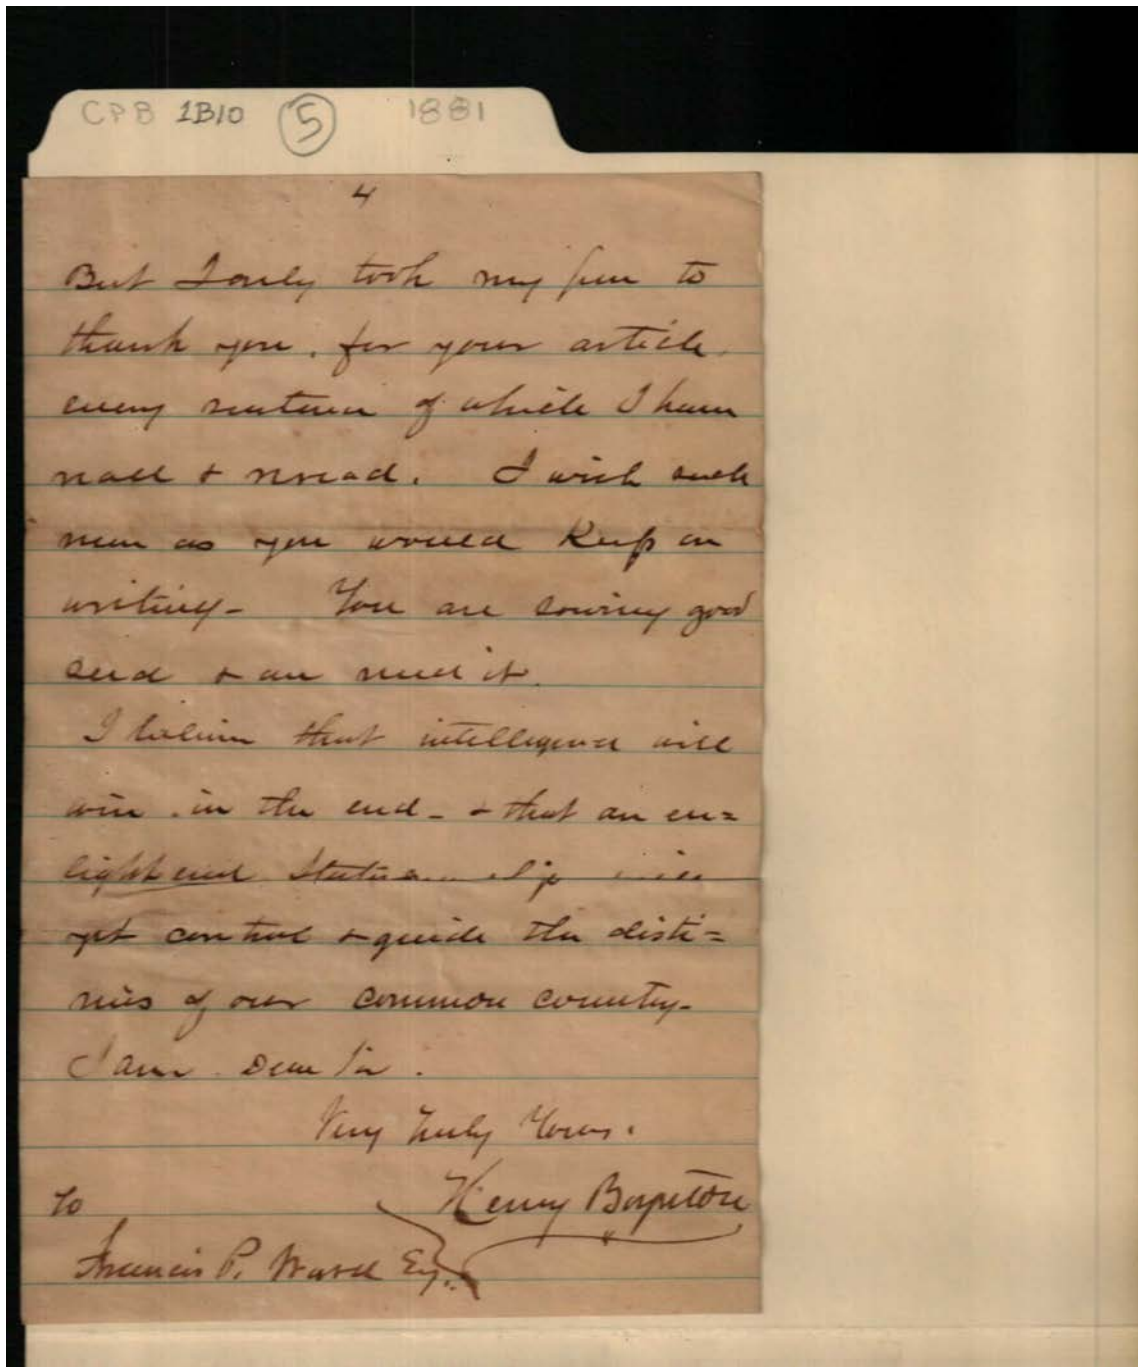 CPB 1B10 5 1881
4
But I only took my pen to
thank you, for your article,
every sentence of which I have
read & reread. I wish such
men as you would keep on
writing - You are sowing good
seed & we need it.
I believe that intelligence will
win in the end - & that an en=
lightened Statesmanship will
yet control & guide the desti=
nies of our common country -
I am. Dear Sir.
Very truly Yours.
To Henry
Francis P. Esq.